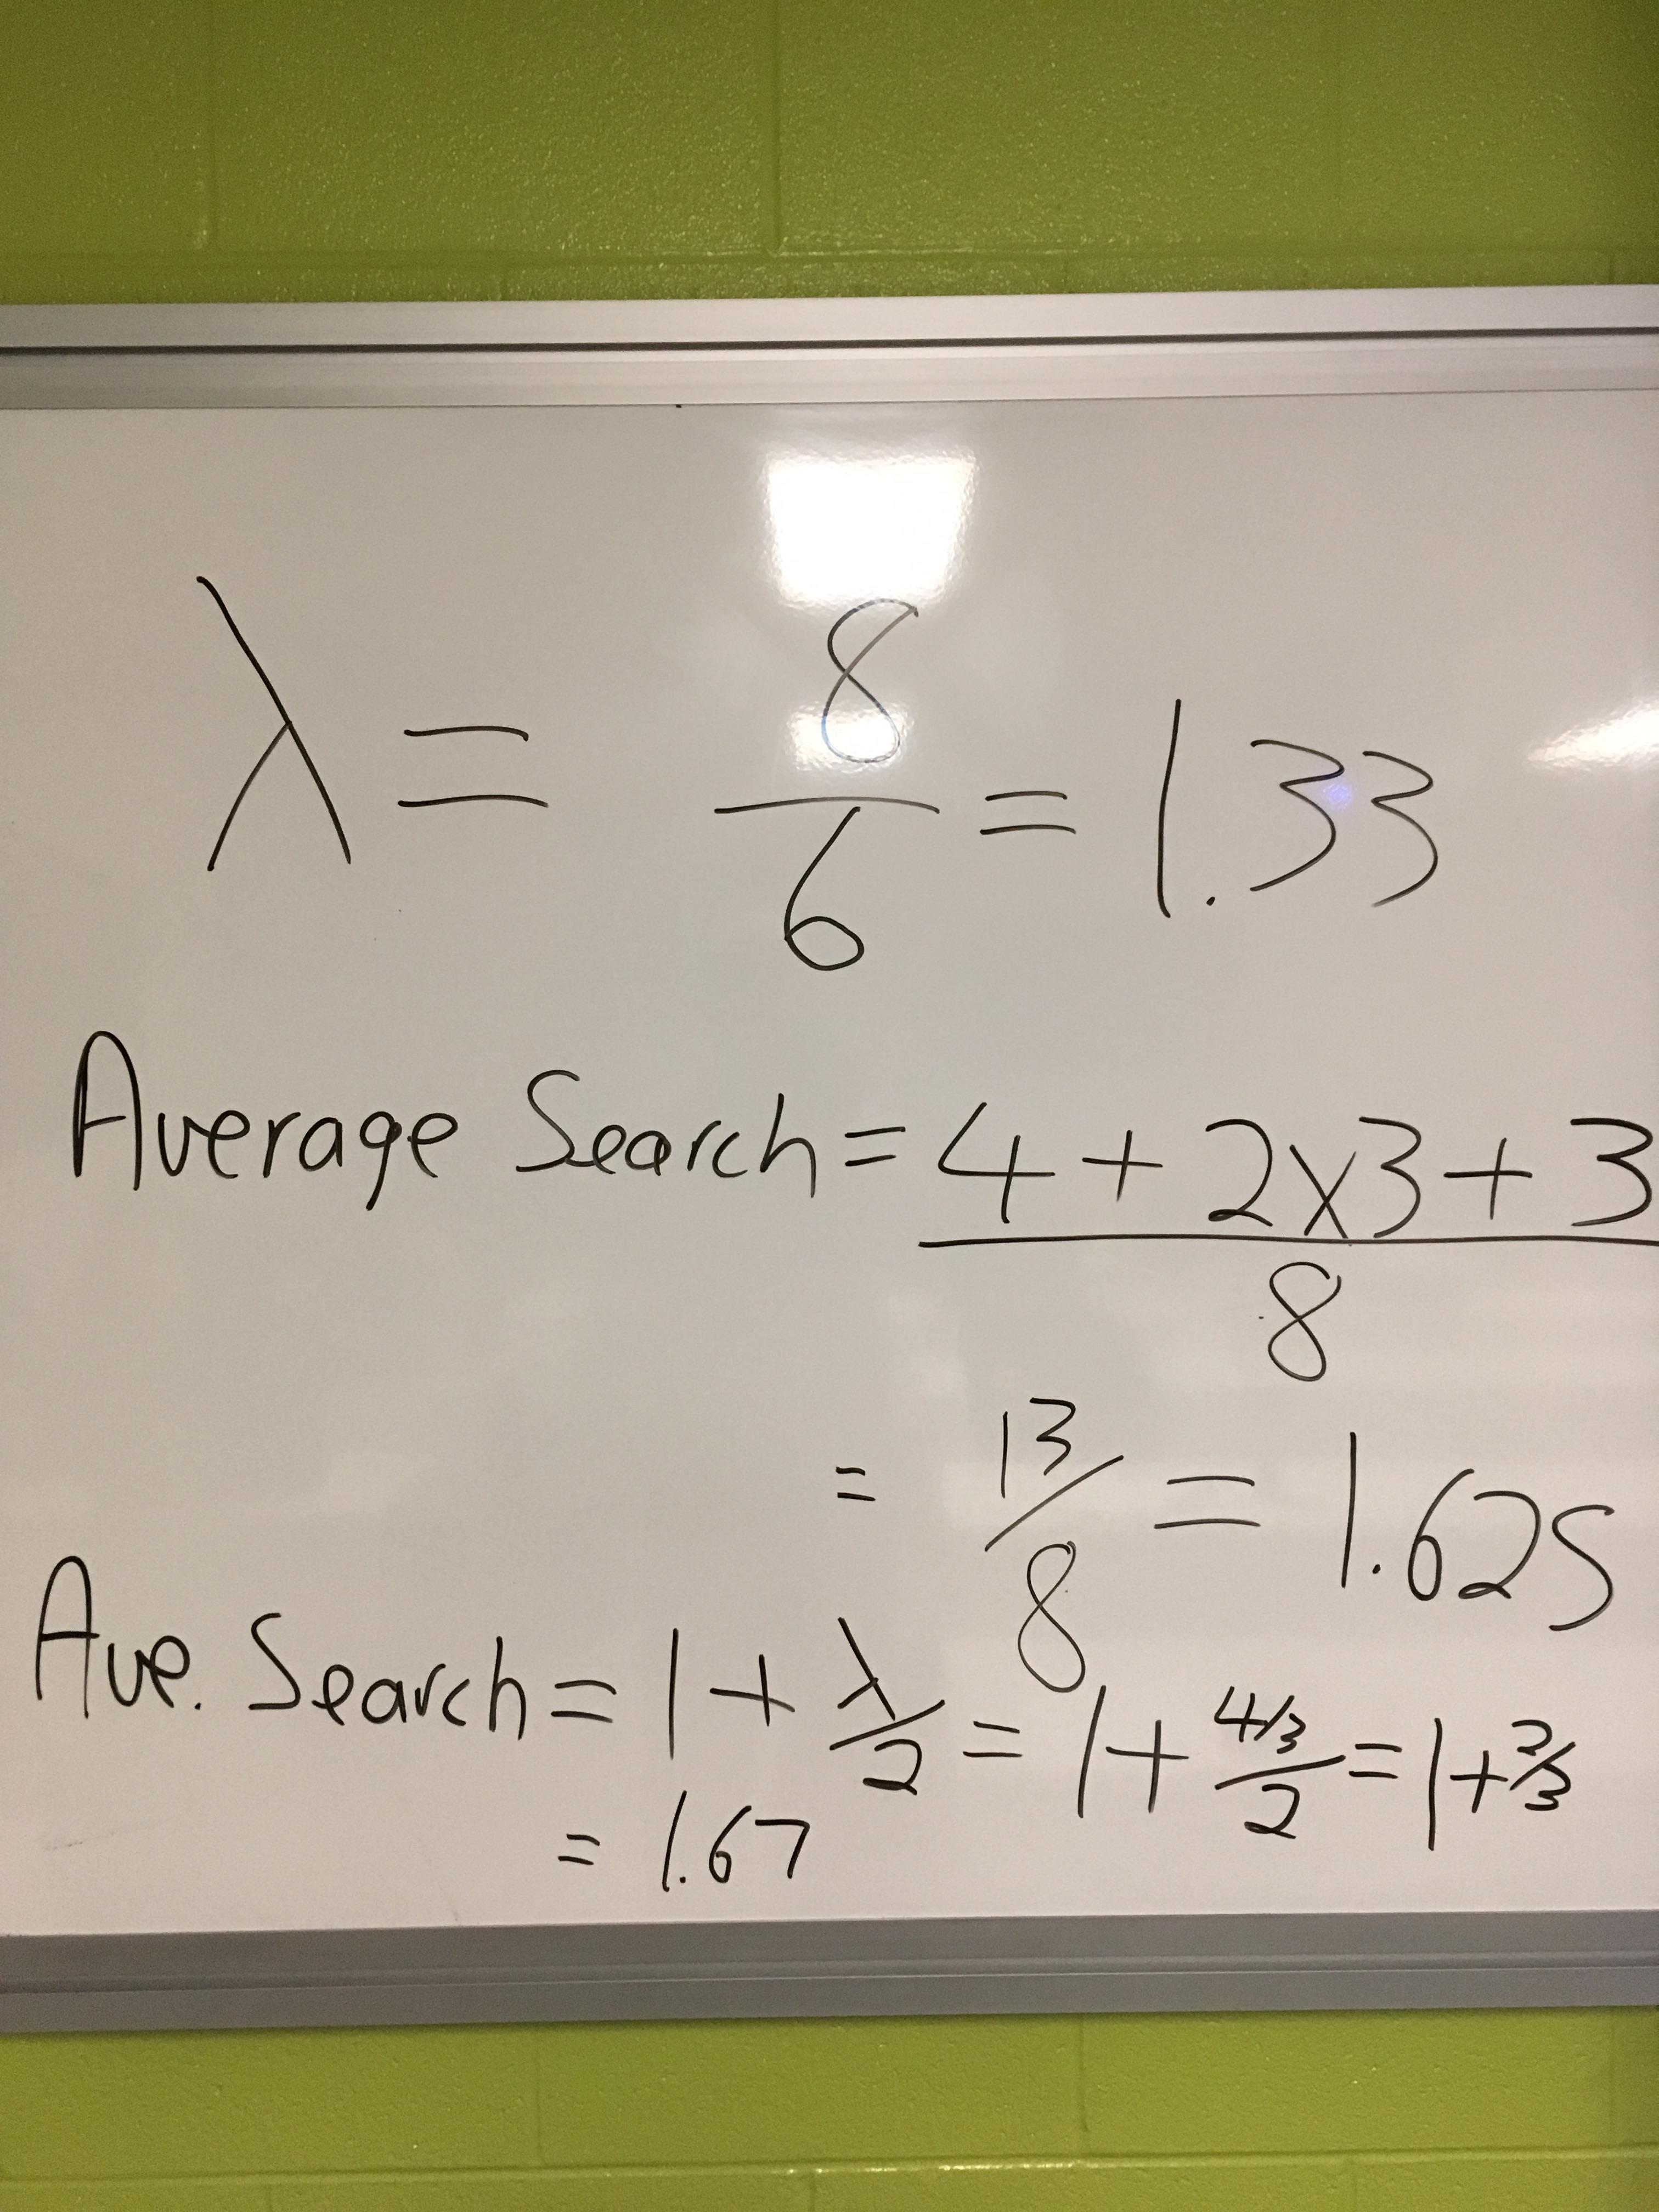 λ = 8/6 = 1.33
Average Search = 4 + 2x3 + 3
8
= 13/8 = 1.625
Ave. Search = 1 + λ/2 = 1 + 4/3/2 = 1 + 2/3
= 1.67